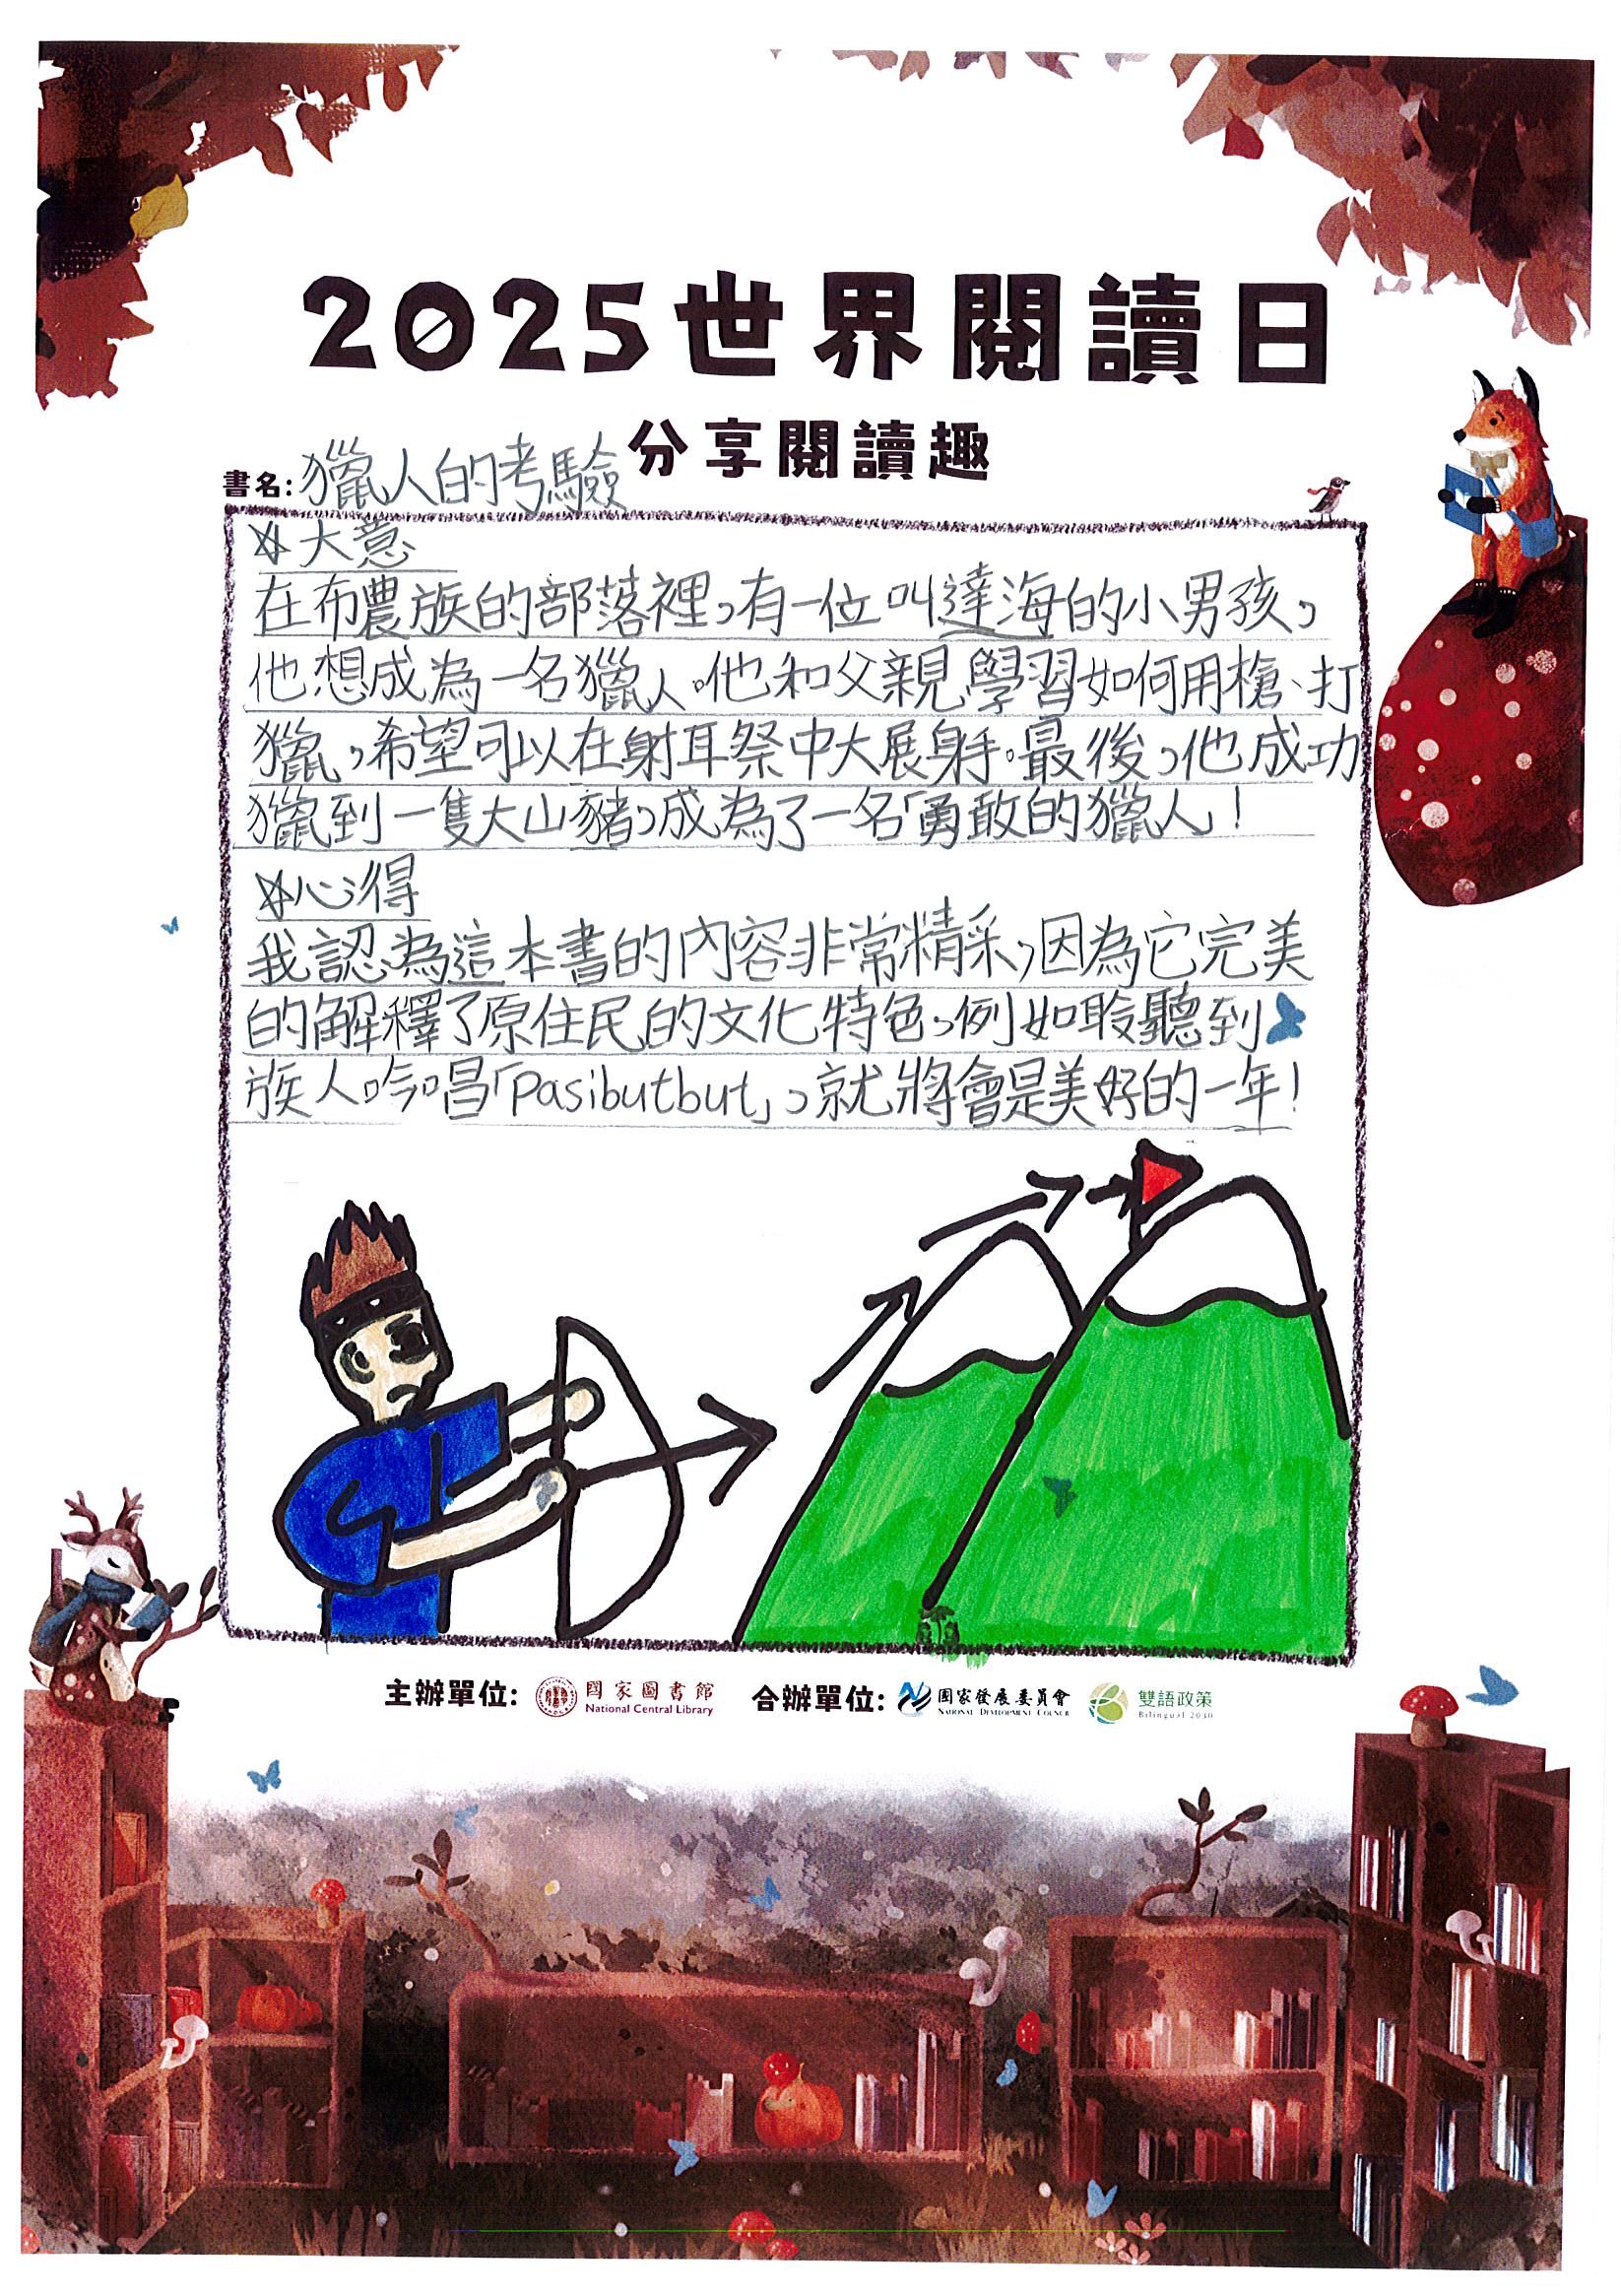 2025世界閱讀日
分享閱讀趣
書名:獵人的考驗
大意
在布農族的部落裡,有一位叫達海的小男孩,
他想成為一名獵人。他和父親學習如何用槍、打
獵,希望可以在射耳祭中大展身手。最後,他成功
獵到一隻大山豬,成為了一名勇敢的獵人!
心得
我認為這本書的內容非常精采,因為它完美
的解釋了原住民的文化特色,例如聆聽到
族人吟唱「Pasibutbut」,就將會是美好的一年!
主辦單位: 國家圖書館 合辦單位: 国家發展委員會 雙語政策
National Central Library NATIONAL DEVELOPMENT COUNCIL Bilingual 2030